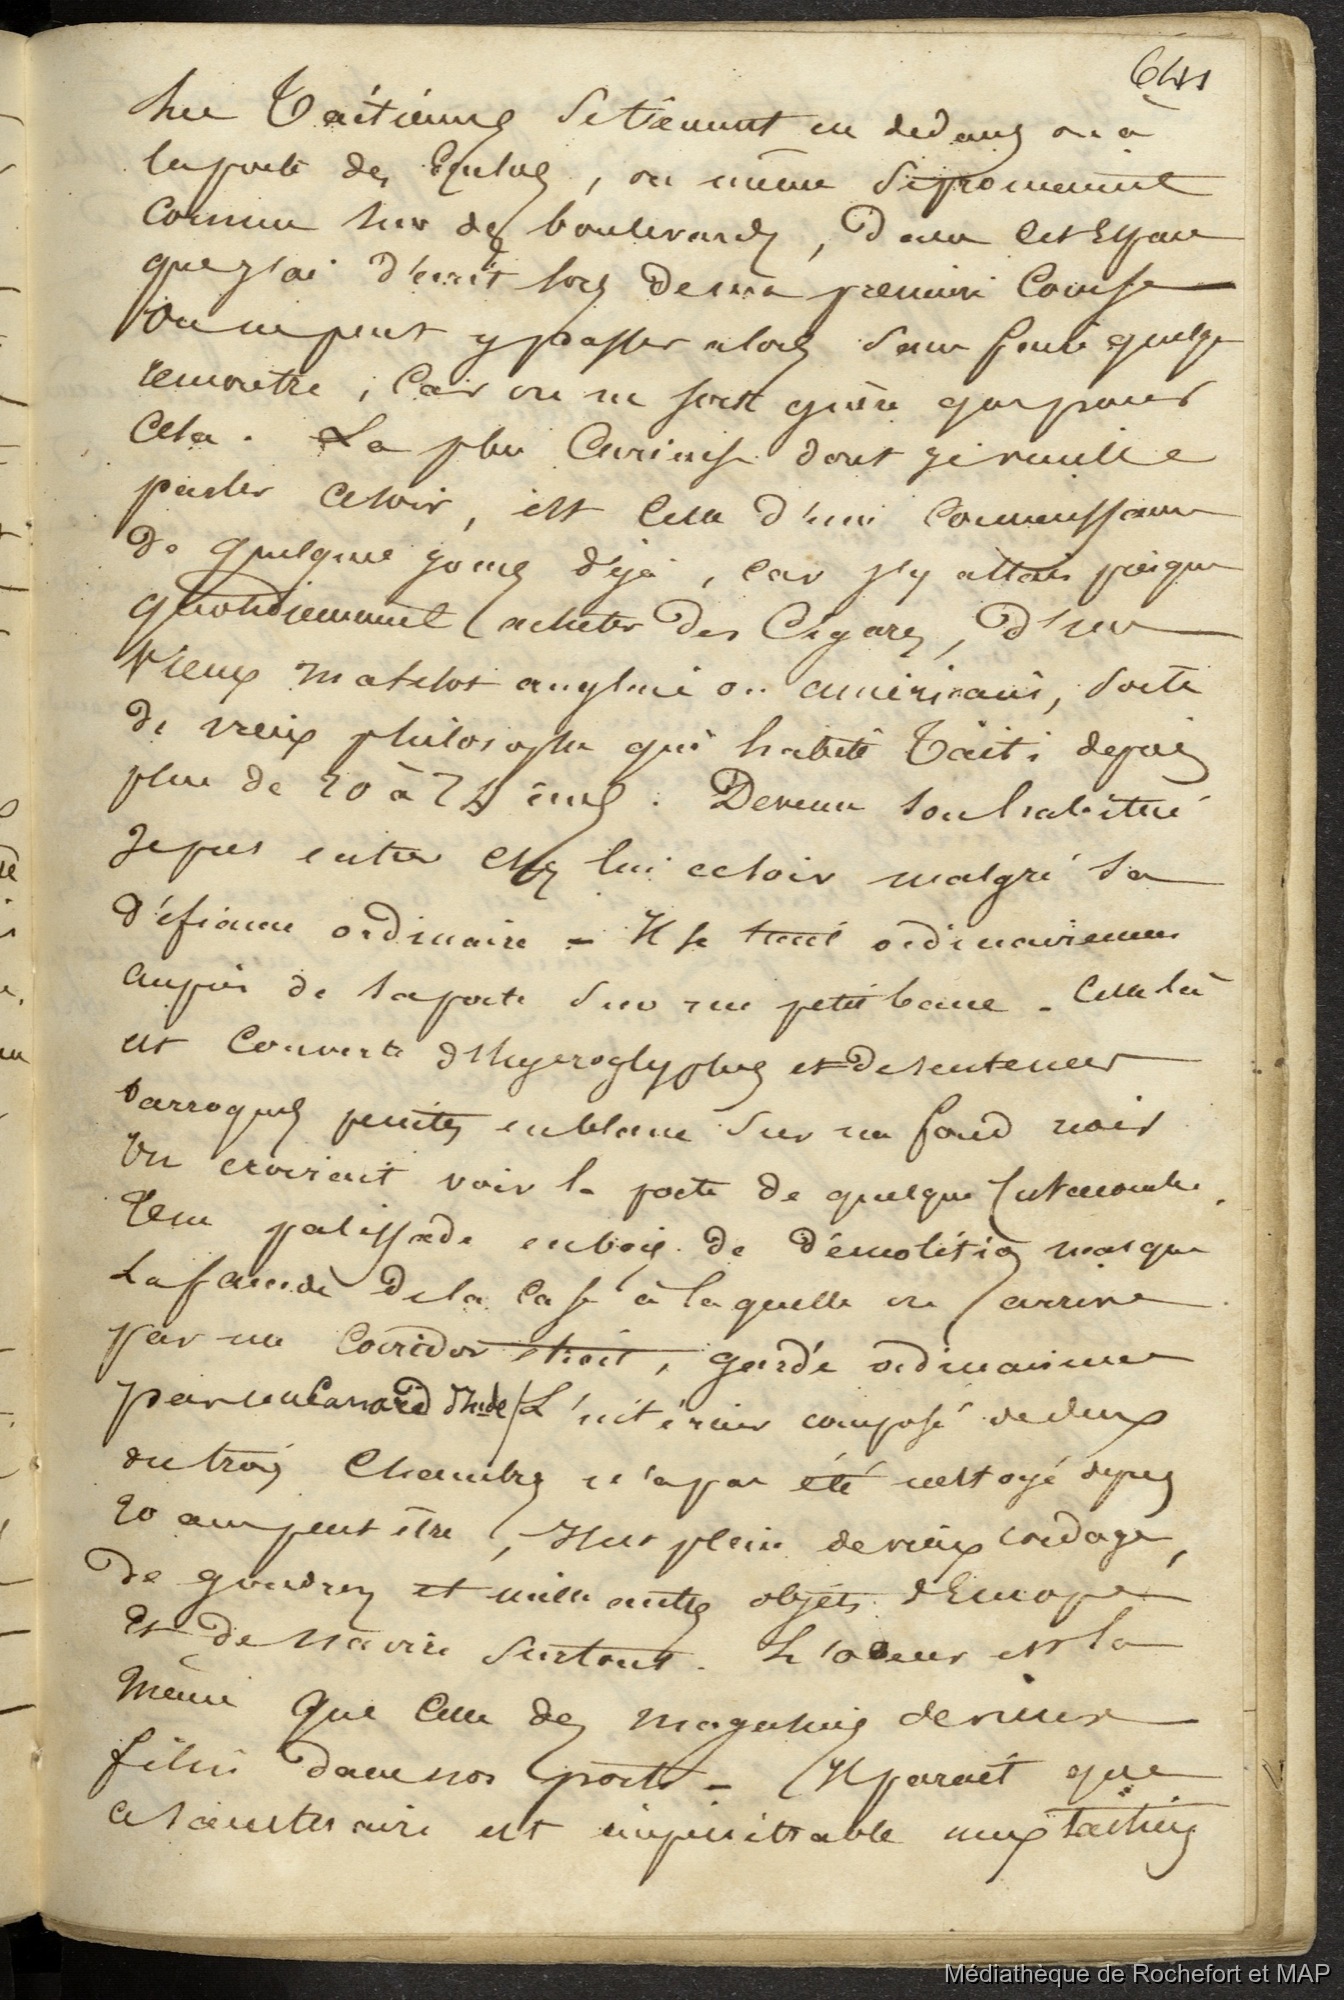 641
Les Taïtiennes se tiennent en dedans ou à
la porte des enclos, ou même se promenent
comme sur des boulevards, dans cet Espace
que j'ai décrit lors de ma premiere Course
On ne peut y passer alors sans faire quelque
rencontre, Car on ne sort guère que pour
Cela. La plus Curieuse dont je veuille
parler ce soir, est celle d'une connaissance
de quelques jours déjà, car j'y allais presque
quotidiennement acheter des Cigares, d'un
vieux matelot anglais ou américain, sorte
de vieux philosophe qui habite Taïti depuis
plus de 20 à 25 ans. Devenu son habitué
Je puis entrer chez lui ce soir malgré sa
défiance ordinaire - Il se tient ordinairement
auprès de sa porte sur un petit banc - Celle là
est Couverte d'hyeroglyphes et de sentences
barroques peintes en blanc sur un fond noir
On croirait voir la porte de quelque
Une palissade en bois de démolition masque
La façade de la Case à laquelle on arrive
par un Corridor étroit, gardé ordinairement
par un Canard d'Inde / L'intérieur composé de deux
ou trois Chambres n'a pas été nettoyé depuis
20 ans peut être, Il est plein de vieux cordages,
de goudron et mille autres objets d'Europe
et de navire surtout. L'odeur est la
même que Celle des magasins de vieux
filin dans nos ports - Il parait que
ce sanctuaire est impénétrable aux taïtiens
Médiathèque de Rochefort et MAP